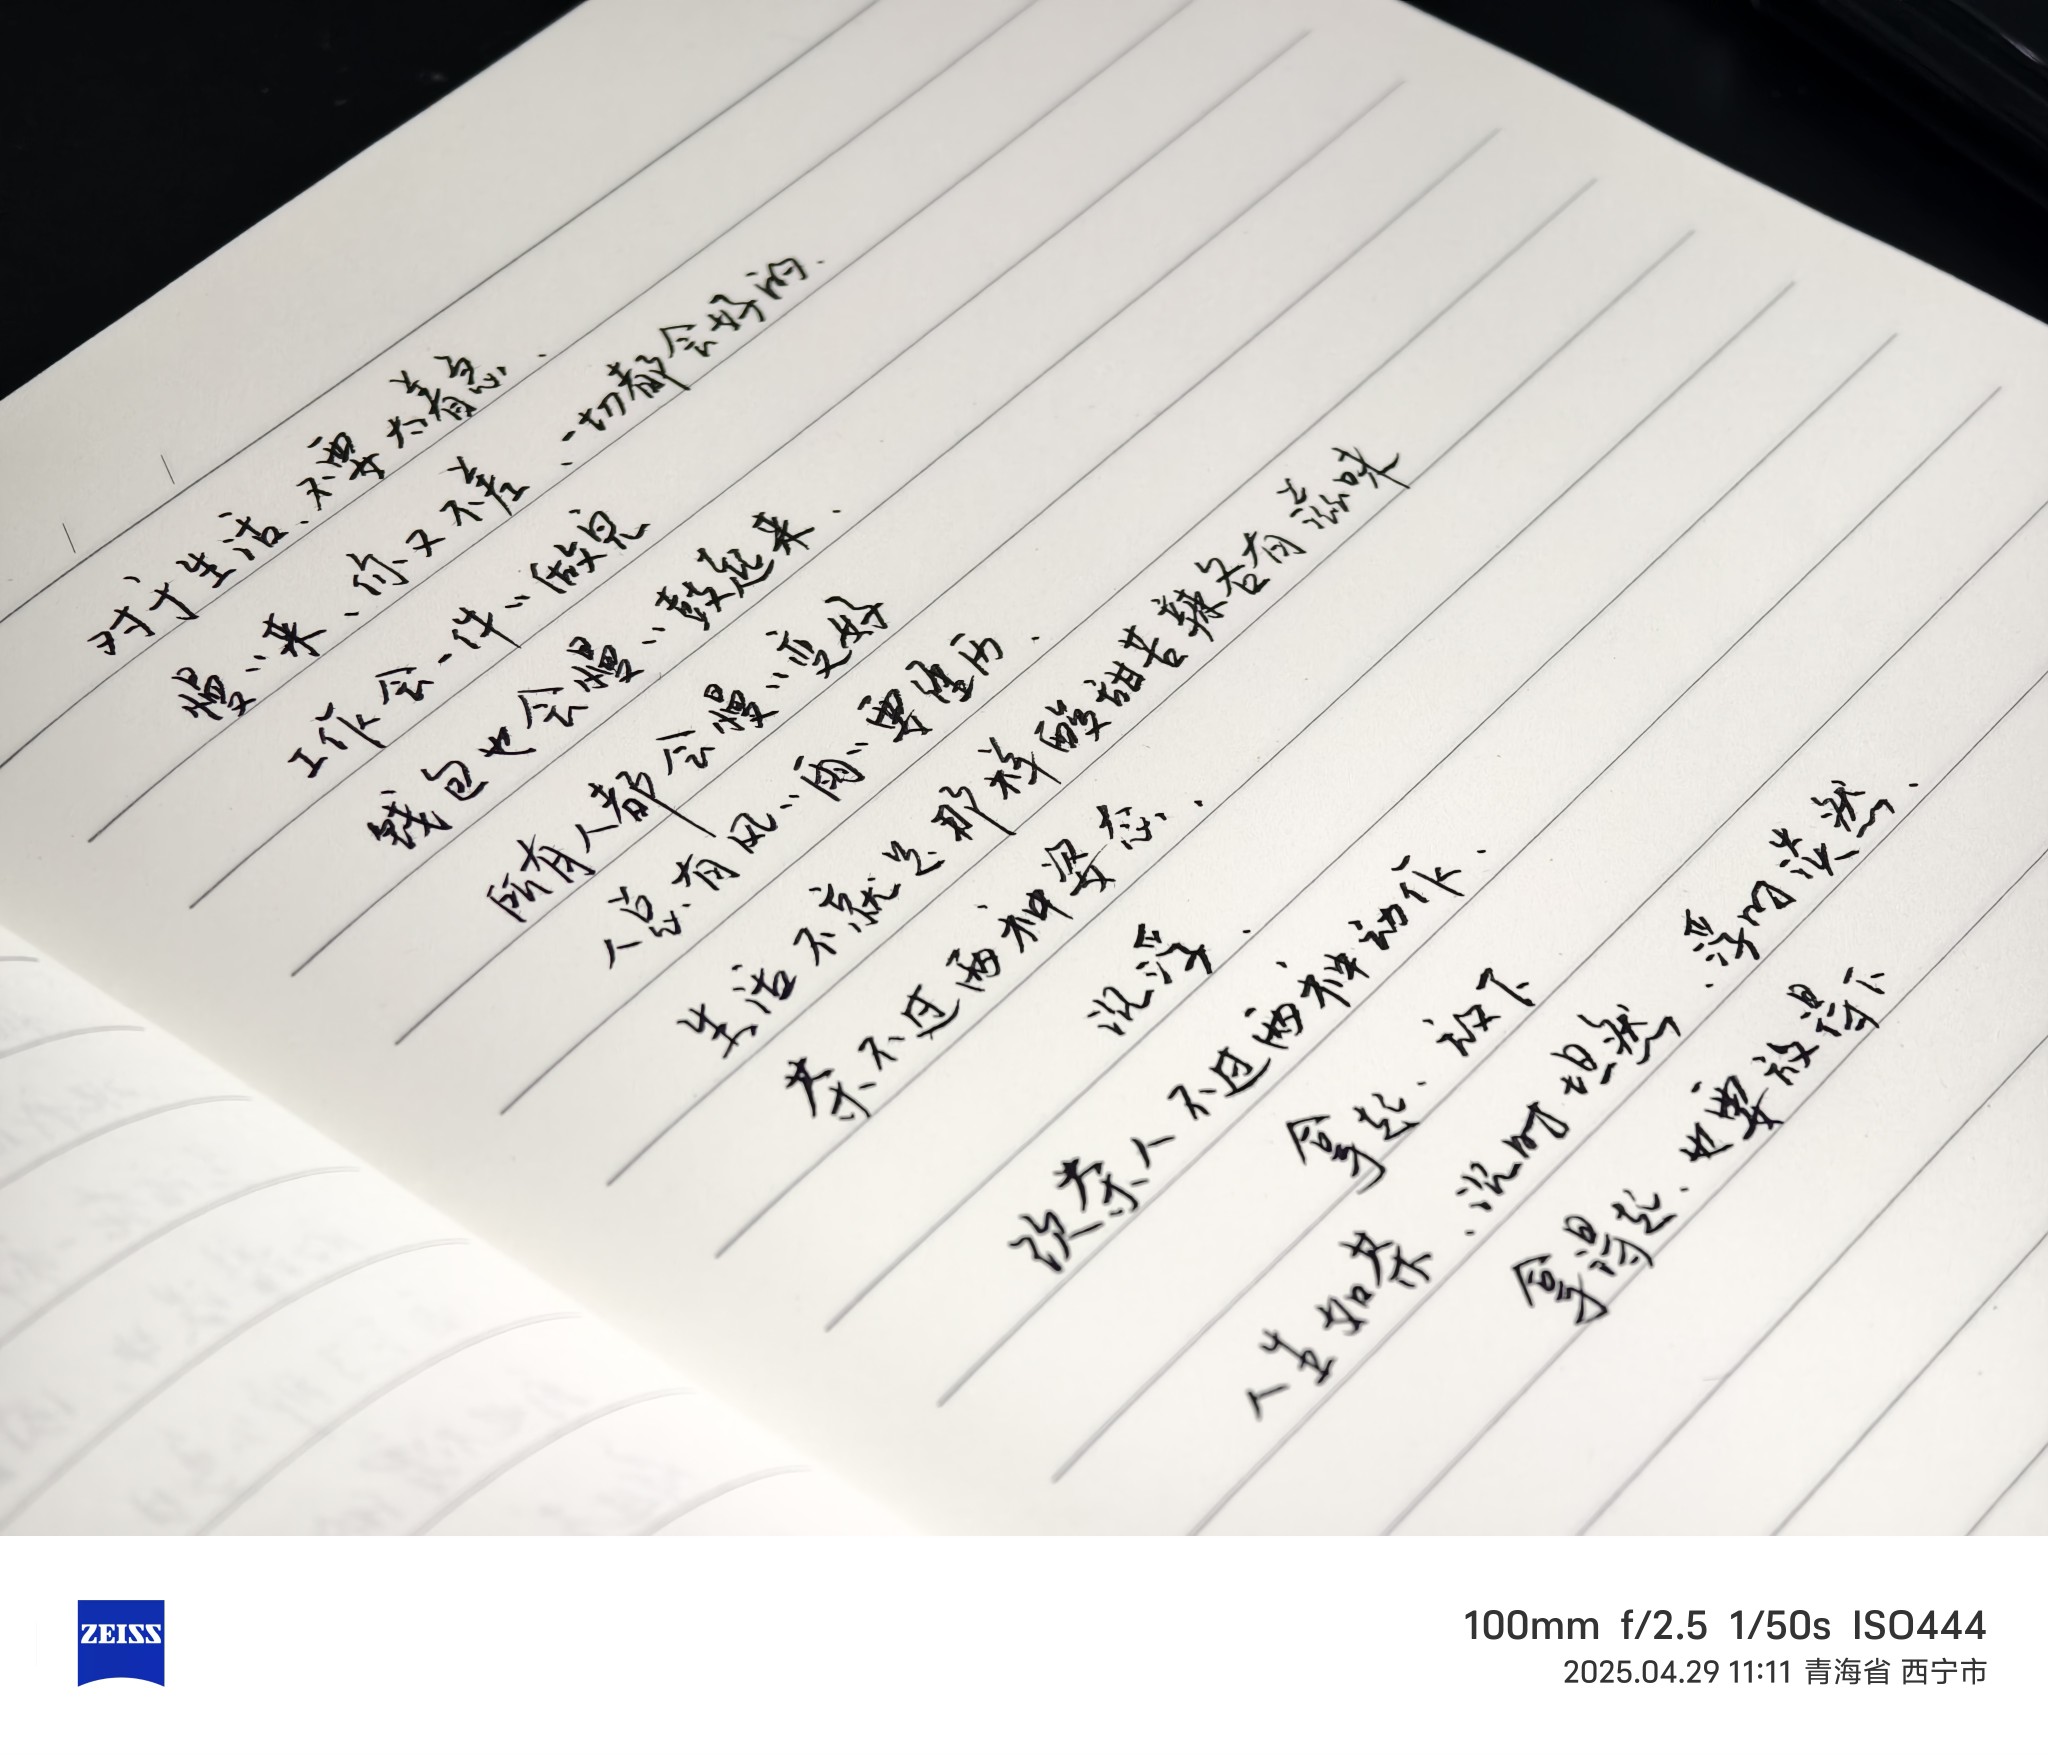 对于生活、不要太着急.
慢〻来、你又不差、一切都会好的.
工作会一件〻做完
钱包也会慢〻鼓起来.
所有人都会慢〻变好
人总有风〻雨〻要经历.
生活不就是那样酸甜苦辣各有滋味
茶不过两种姿态.
沉浮.
饮茶人不过两种动作.
拿起、放下
人生如茶、沉时坦然、浮时淡然.
拿得起、也要放得下
ZEISS
100mm f/2.5 1/50s ISO444
2025.04.29 11:11 青海省 西宁市